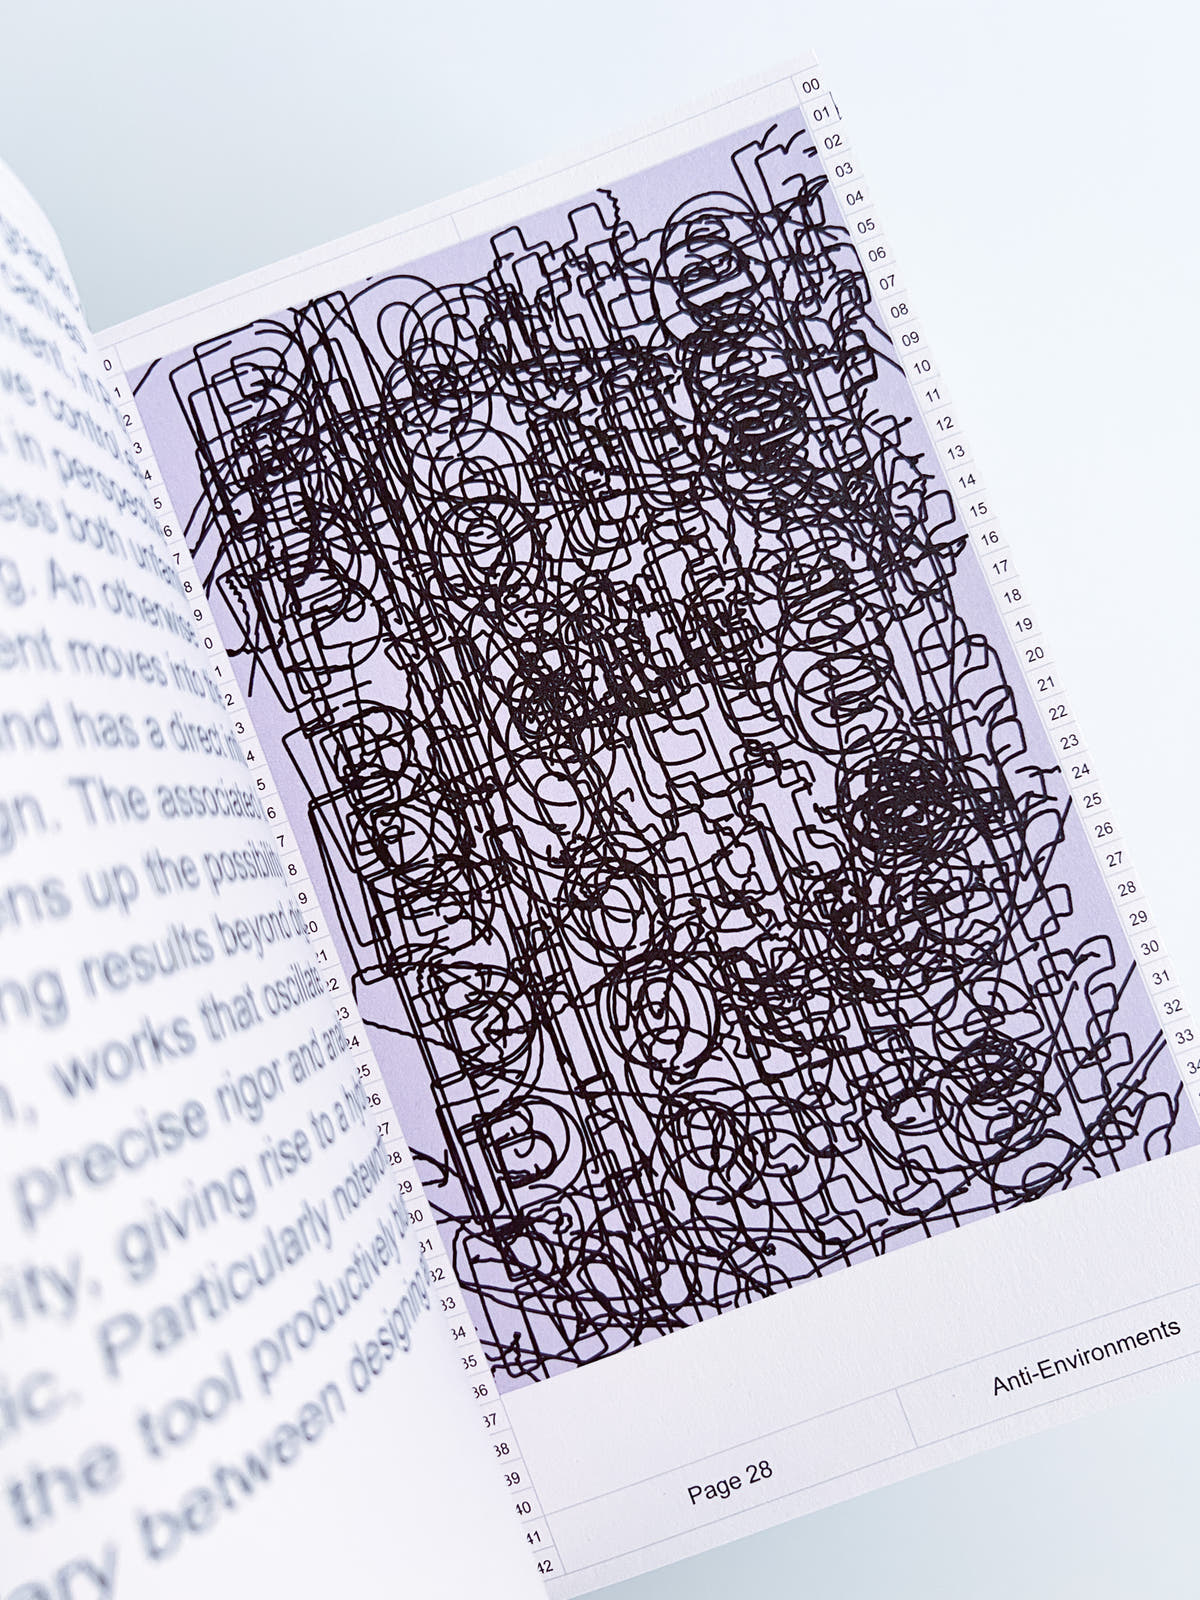 ment, in
ve control
in perspec
ess both unfa
g. An otherwise
ent moves into the
and has a direct
gn. The associated
ns up the possibili
ng results beyond
works that oscillate
precise rigor and
rity, giving rise to a
tic. Particularly
the tool productively
ary between designing
0
1
2
3
4
5
6
7
8
9
0
1
2
3
4
5
6
7
8
9
20
21
22
23
24
25
26
27
28
29
30
31
32
33
34
35
36
37
38
39
40
41
42
00
01
02
03
04
05
06
07
08
09
10
11
12
13
14
15
16
17
18
19
20
21
22
23
24
25
26
27
28
29
30
31
32
33
34
Page 28
Anti-Environments